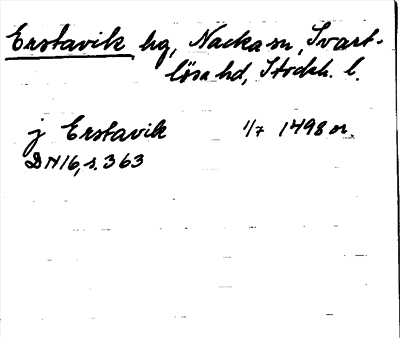 Erstavik hg, Nacka sn, Svart-
lösa hd, Stockh. l.
j Erstavik 1/7 1498 or.
DN16, s. 363